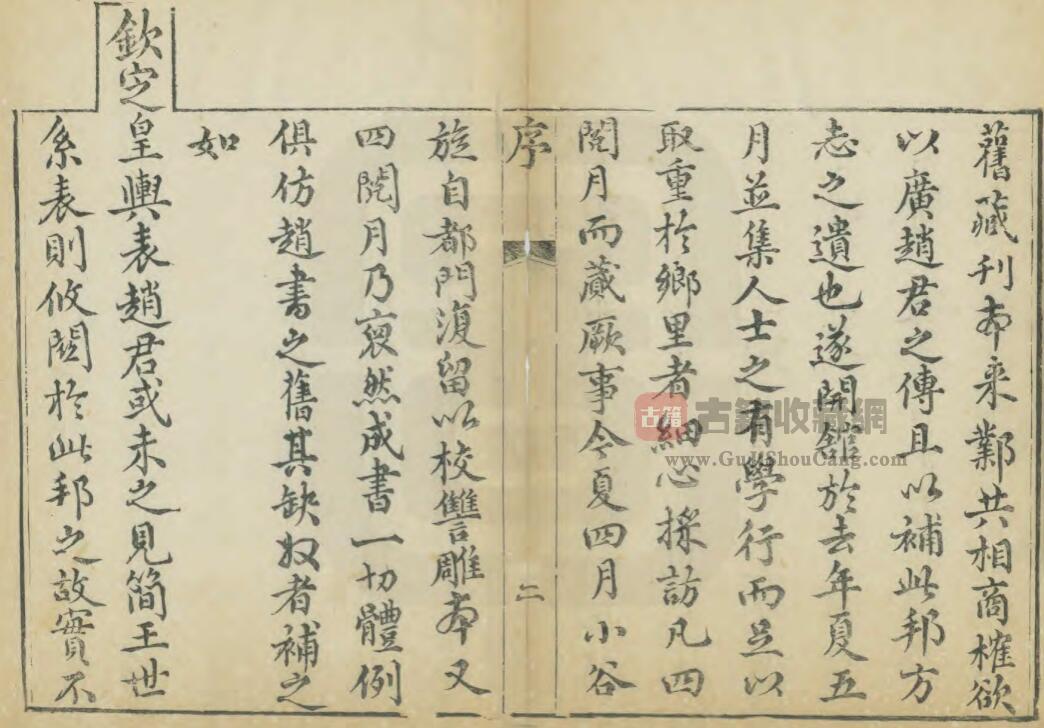 舊藏刊本来鄴共相商榷欲
以廣趙君之傳且以補此邦方
志之遺也遂開舘於去年夏五
月並集人士之有學行而足以
取重於鄉里者細心採訪凡四
閱月而蕆厥事今夏四月小谷
序
二
旋自都門復留以校讐雕本又
四閱月乃裒然成書一切體例
俱仿趙書之舊其缺者補之
如
欽定皇輿表趙君或未之見簡王世
系表則攸關於此邦之故實不
古籍
古籍收藏網
www.GuJiShouCang.com